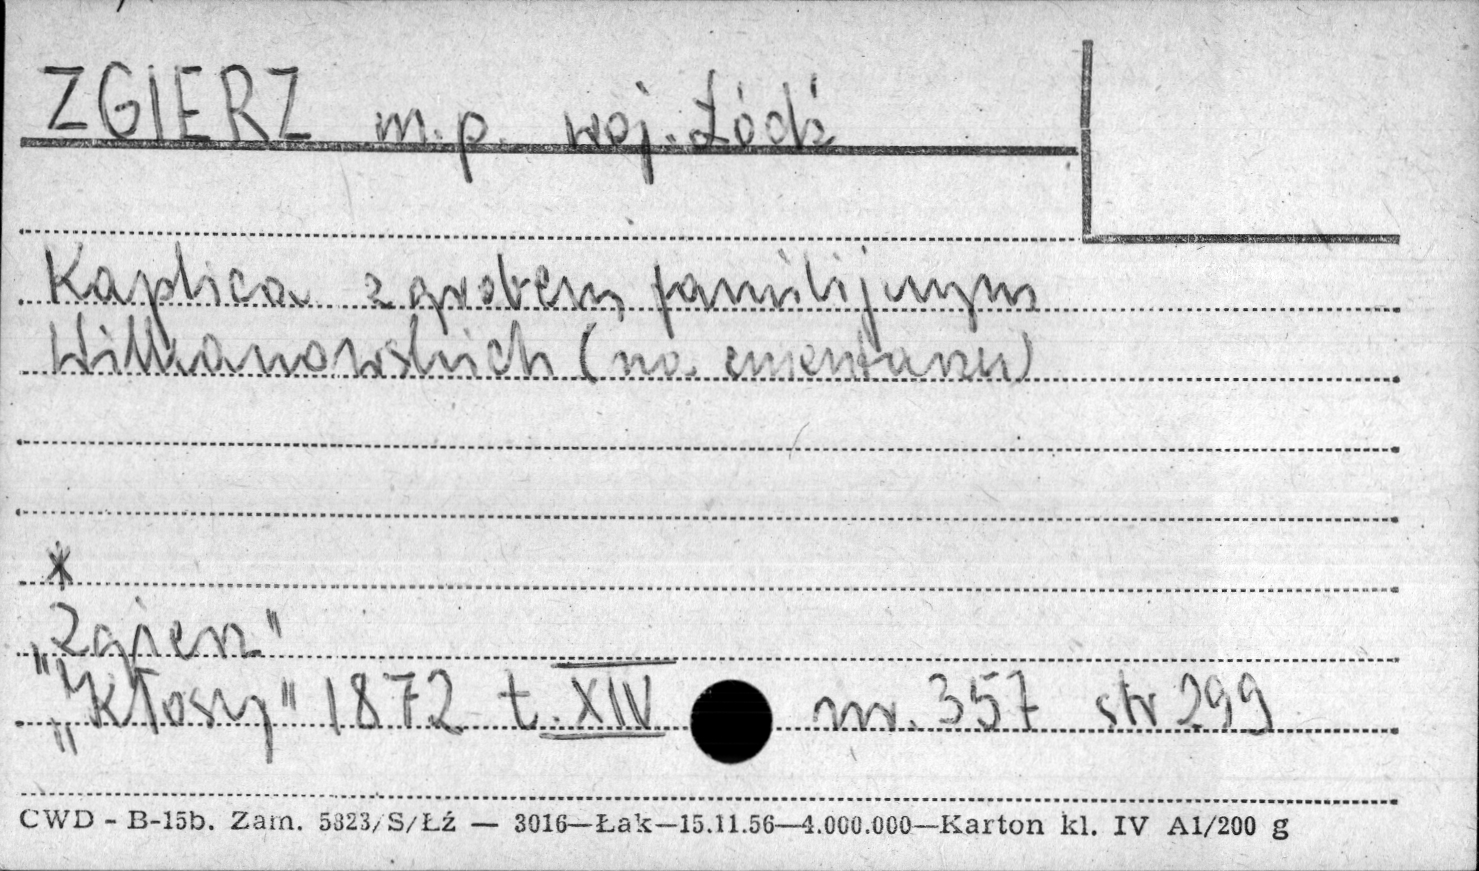 ZGIERZ m.p. woj. Łódź
Kaplica z grobem familijnym
(na cmentarzu)
*
„Zgierz"
„Kłosy" 1872 t. XIV nr. 357 str 299
CWD - B-15b. Zam. 5823/S/Łź — 3016—Łak—15.11.56—4.000.000—Karton kl. IV A1/200 g